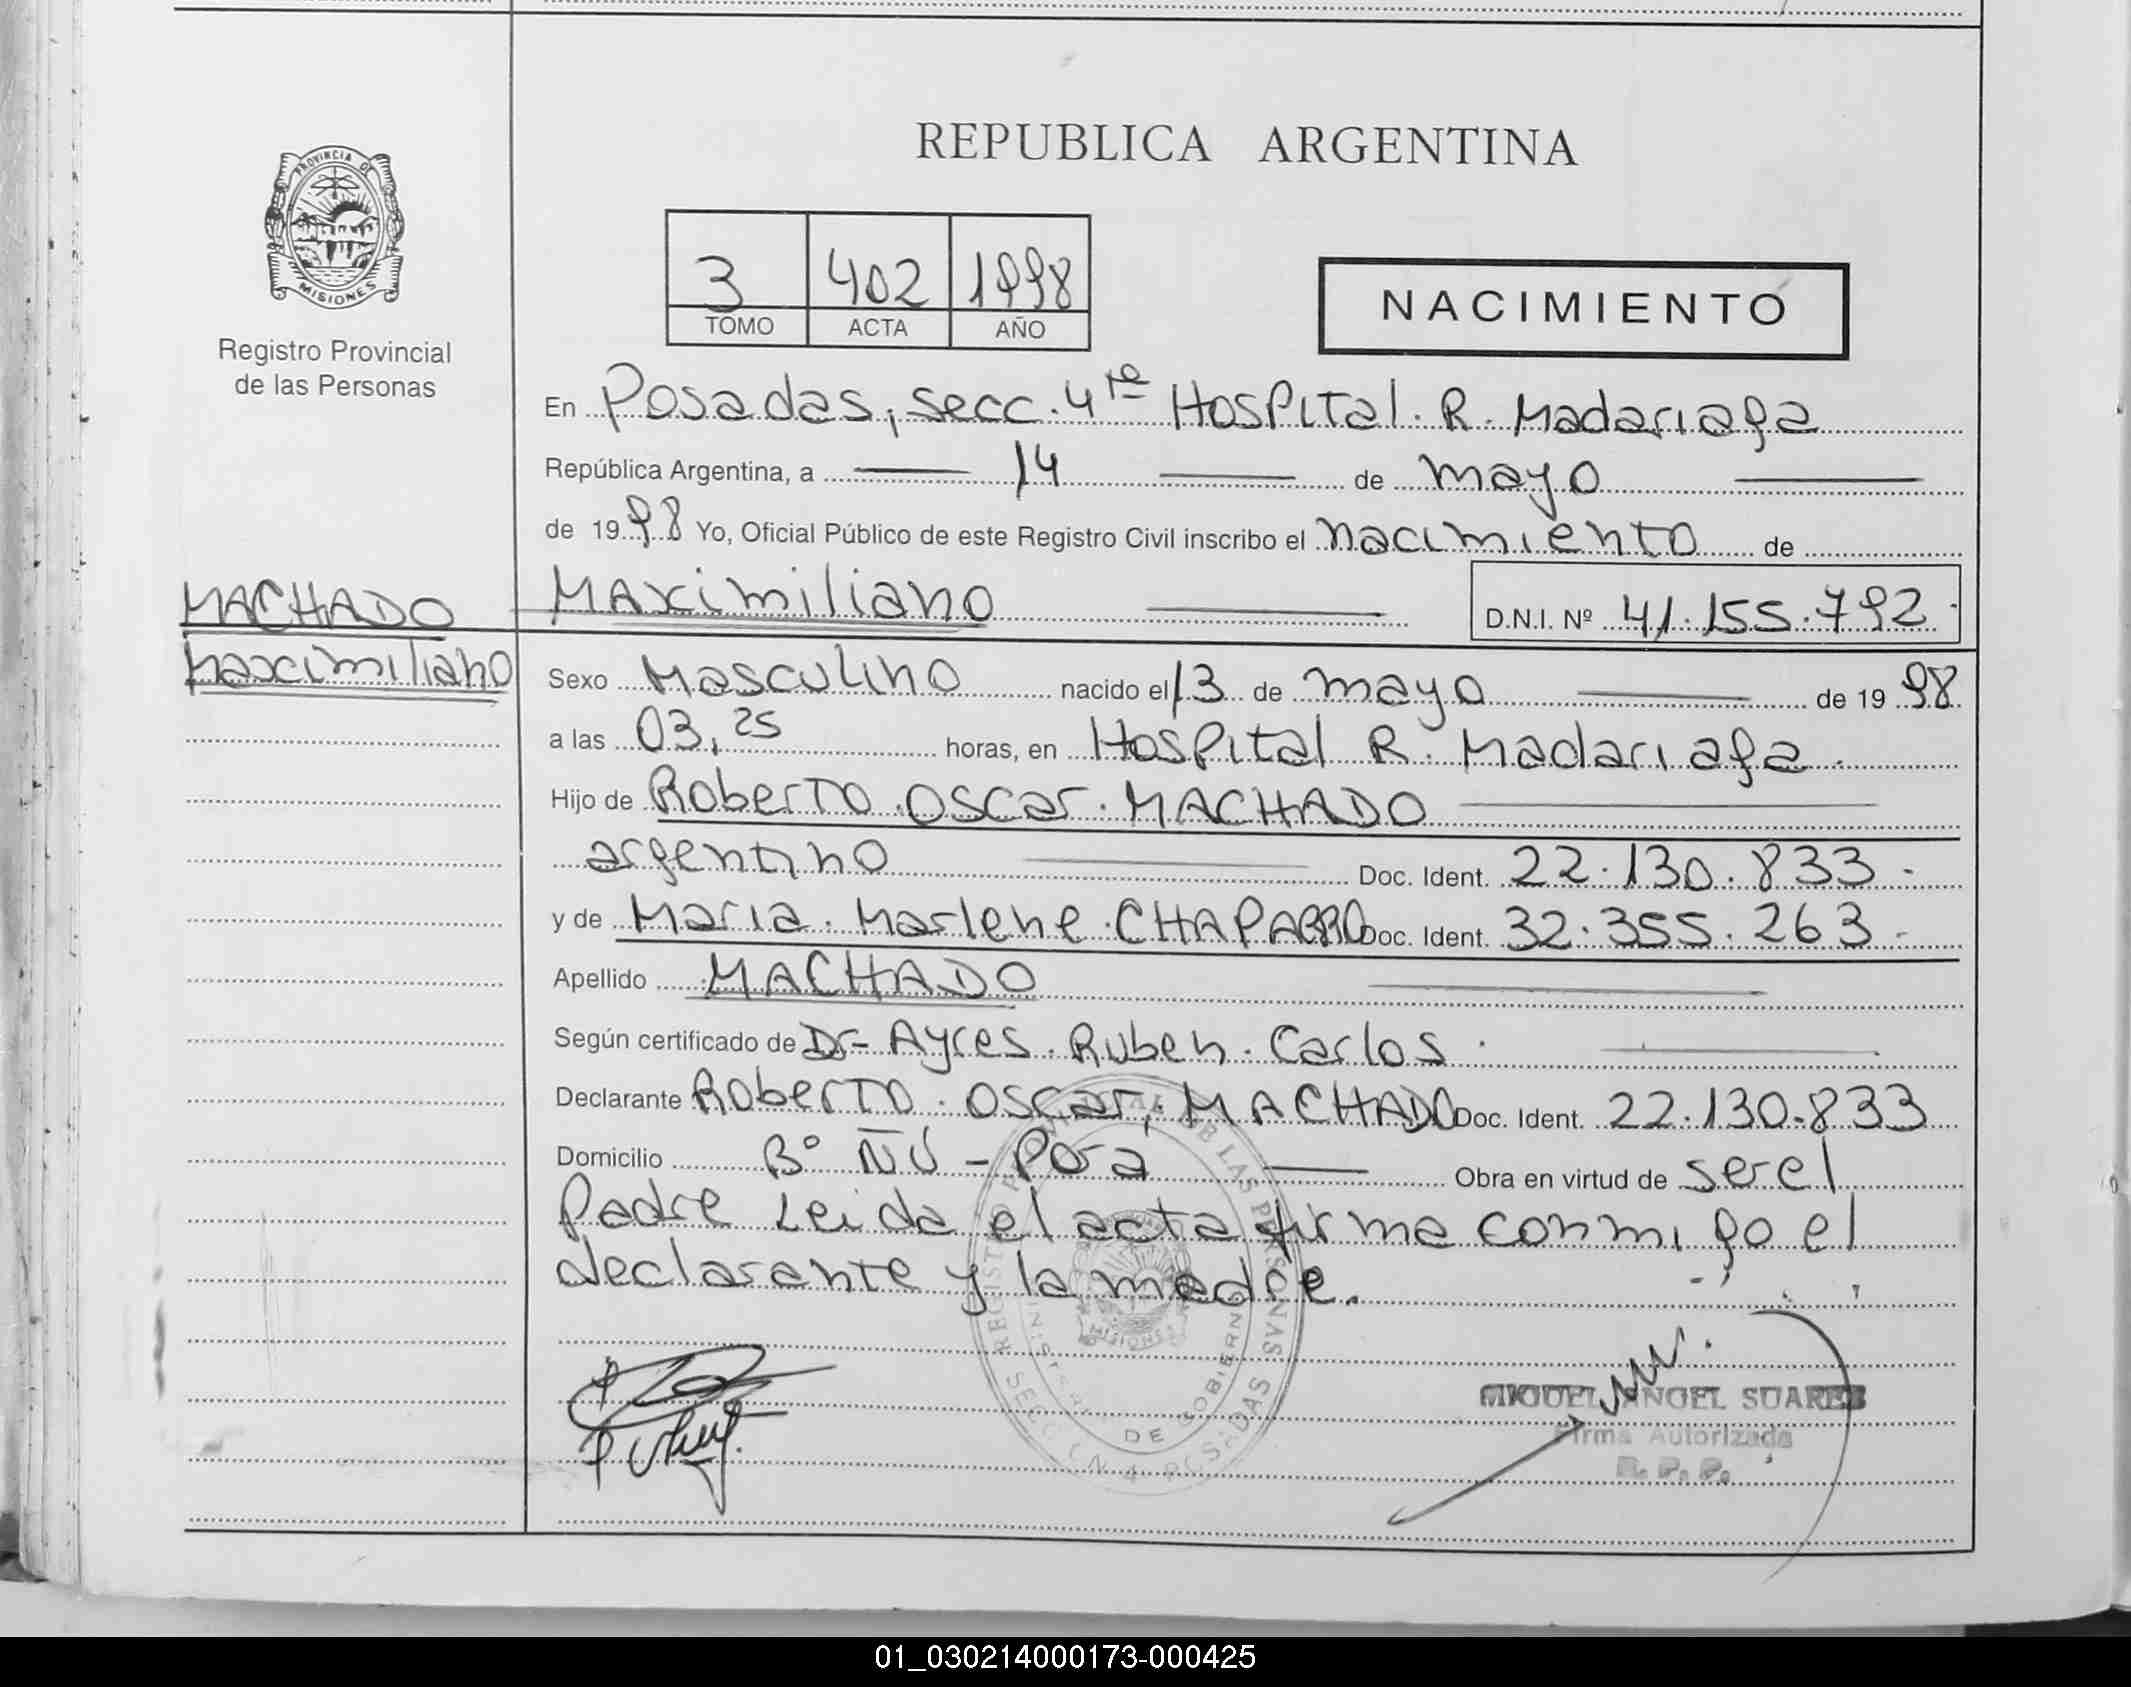 REPUBLICA ARGENTINA
PROVINCIA DE
MISIONES
Registro Provincial
de las Personas
3 402 1998
TOMO ACTA AÑO
NACIMIENTO
En Posadas, secc. 4ta Hospital R. Madariaga
República Argentina, a 14 de mayo
de 1998 Yo, Oficial Público de este Registro Civil inscribo el nacimiento de
MACHADO
Maximiliano
Maximiliano D.N.I. Nº 41.155.792.
Sexo Masculino nacido el 13 de mayo de 1998
a las 03,25 horas, en Hospital R. Madariaga.
Hijo de Roberto Oscar MACHADO
argentino Doc. Ident. 22.130.833.
y de Maria Marlene CHAPARRO Doc. Ident. 32.355.263.
Apellido MACHADO
Según certificado de Dr- Ayres Ruben Carlos.
Declarante Roberto Oscar, MACHADO Doc. Ident. 22.130.833
Domicilio Bº ÑU - Porá Obra en virtud de ser el
Padre Leida el acta firma conmigo el
declarante y la madre.
MIGUEL ANGEL SUAREZ
Firma Autorizada
R. P. P.
01_030214000173-000425